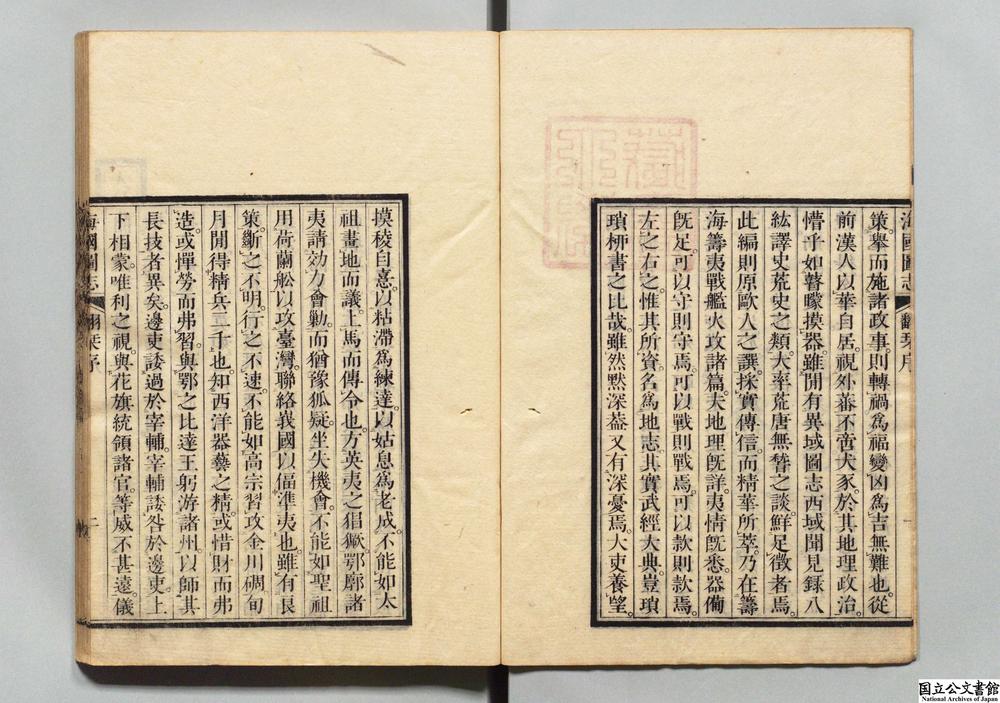 海國圖志 翻栞序 一
策。擧而施諸政事。則轉禍爲福。變凶爲吉。無難也。從
前漢人以華自居。視外蕃不啻犬豕。於其地理政治。
懵乎如瞽矇摸器。雖閒有異域圖志西域聞見錄八
紘譯史荒史之類。大率荒唐無稽之談。鮮足徵者焉。
此編則原歐人之譔。採實傳信。而精華所萃。乃在籌
海籌夷戰艦火攻諸篇。夫地理旣詳。夷情旣悉。器備
旣足。可以守則守焉。可以戰則戰焉。可以款則款焉。
左之右之。惟其所資。名爲地志。其實武經大典。豈瑣
瑣柳書之比哉。雖然默深葢又有深憂焉。大吏養望。
摸稜自憙。以粘滯爲練達。以姑息爲老成。不能如太
祖畫地而議。上馬而傳令也。方英夷之猖獗。鄂廓諸
夷請効力會勦。而猶豫狐疑。坐失機會。不能如聖祖
用荷蘭舩以攻臺灣。聯絡我國以偪準夷也。雖有良
策。斷之不明。行之不速。不能如高宗習攻金川碉。旬
月閒得精兵二千也。知西洋器藝之精。或惜財而弗
造。或憚勞而弗習。與鄂之比達王躬游諸州。以師其
長技者異矣。邊吏諉過於宰輔。宰輔諉咎於邊吏。上
下相蒙。唯利之視。與花旗統領諸官。等威不甚遠。儀
海國圖志 翻栞序 二
国立公文書館
National Archives of Japan